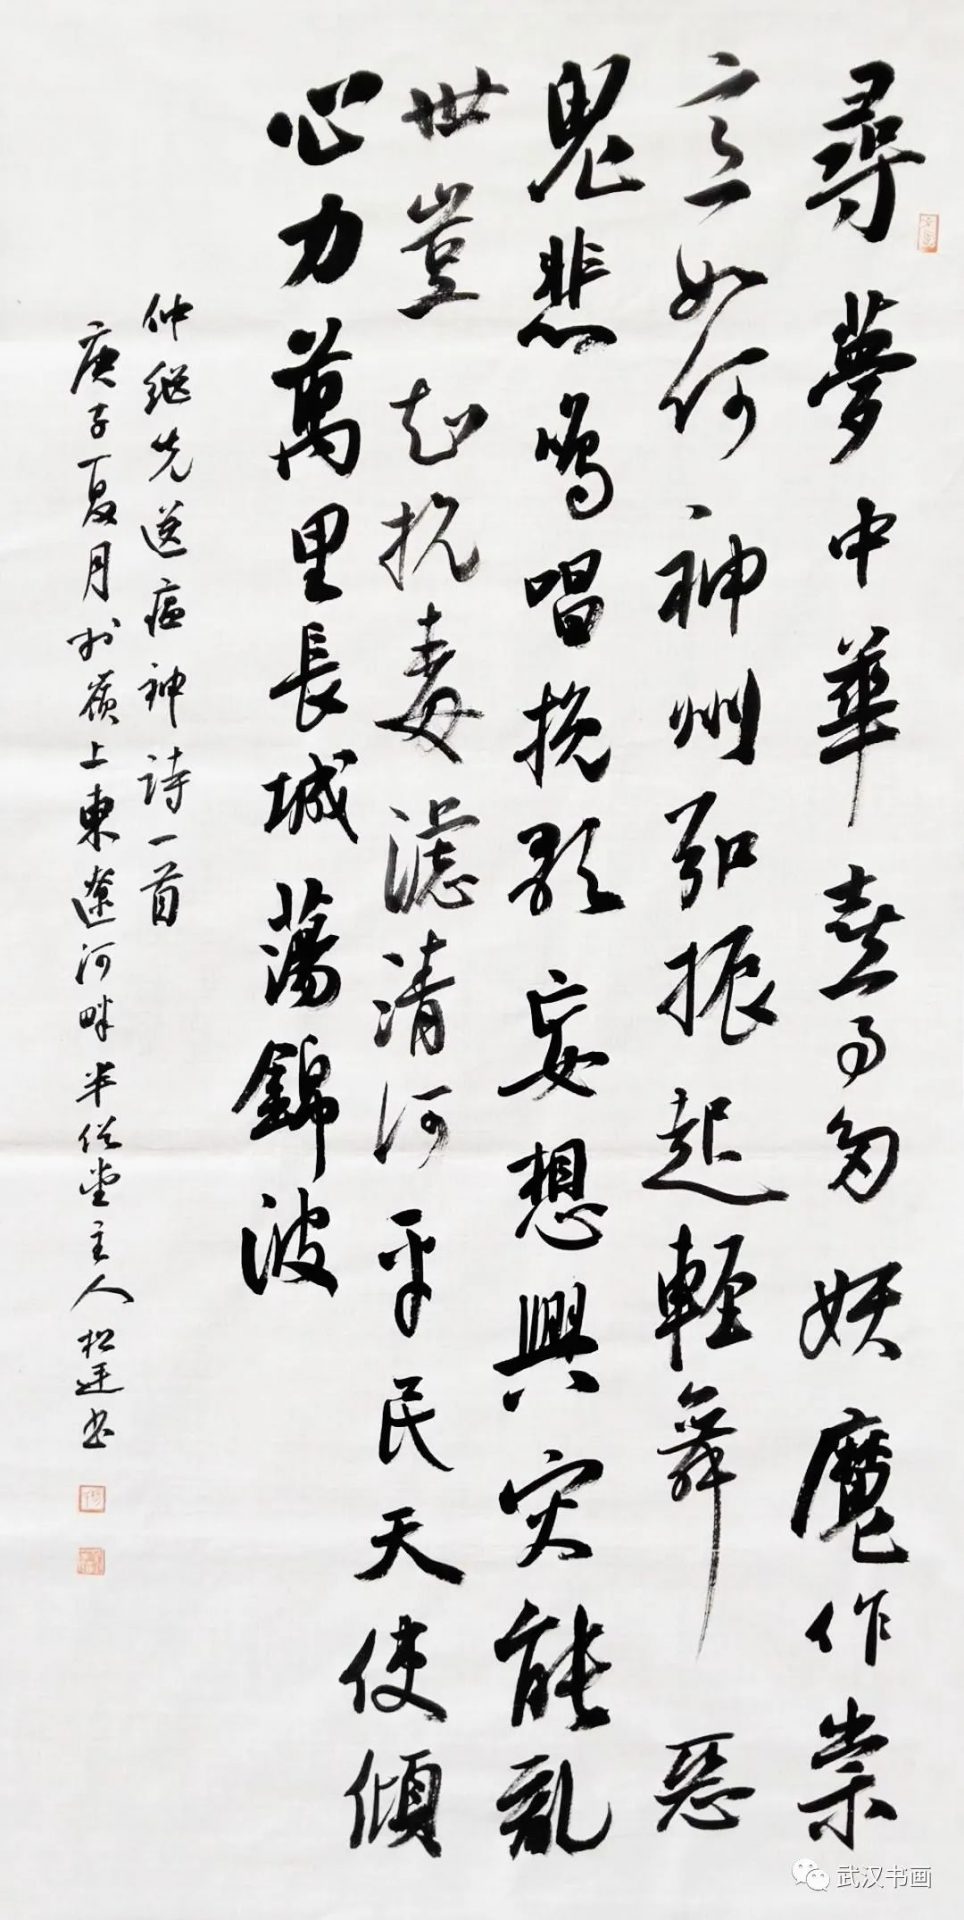 尋夢中華喜事多妖魔作祟
意如何神州弘振起輕舞惡
鬼悲鳴唱挽歌妄想興災能亂
世豈知抗毒濾清河平民天使傾
心力萬里長城蕩錦波
仲继先送瘟神詩一首
庚子夏月於嶺上東遼河畔半俗堂主人松廷书
武汉书画